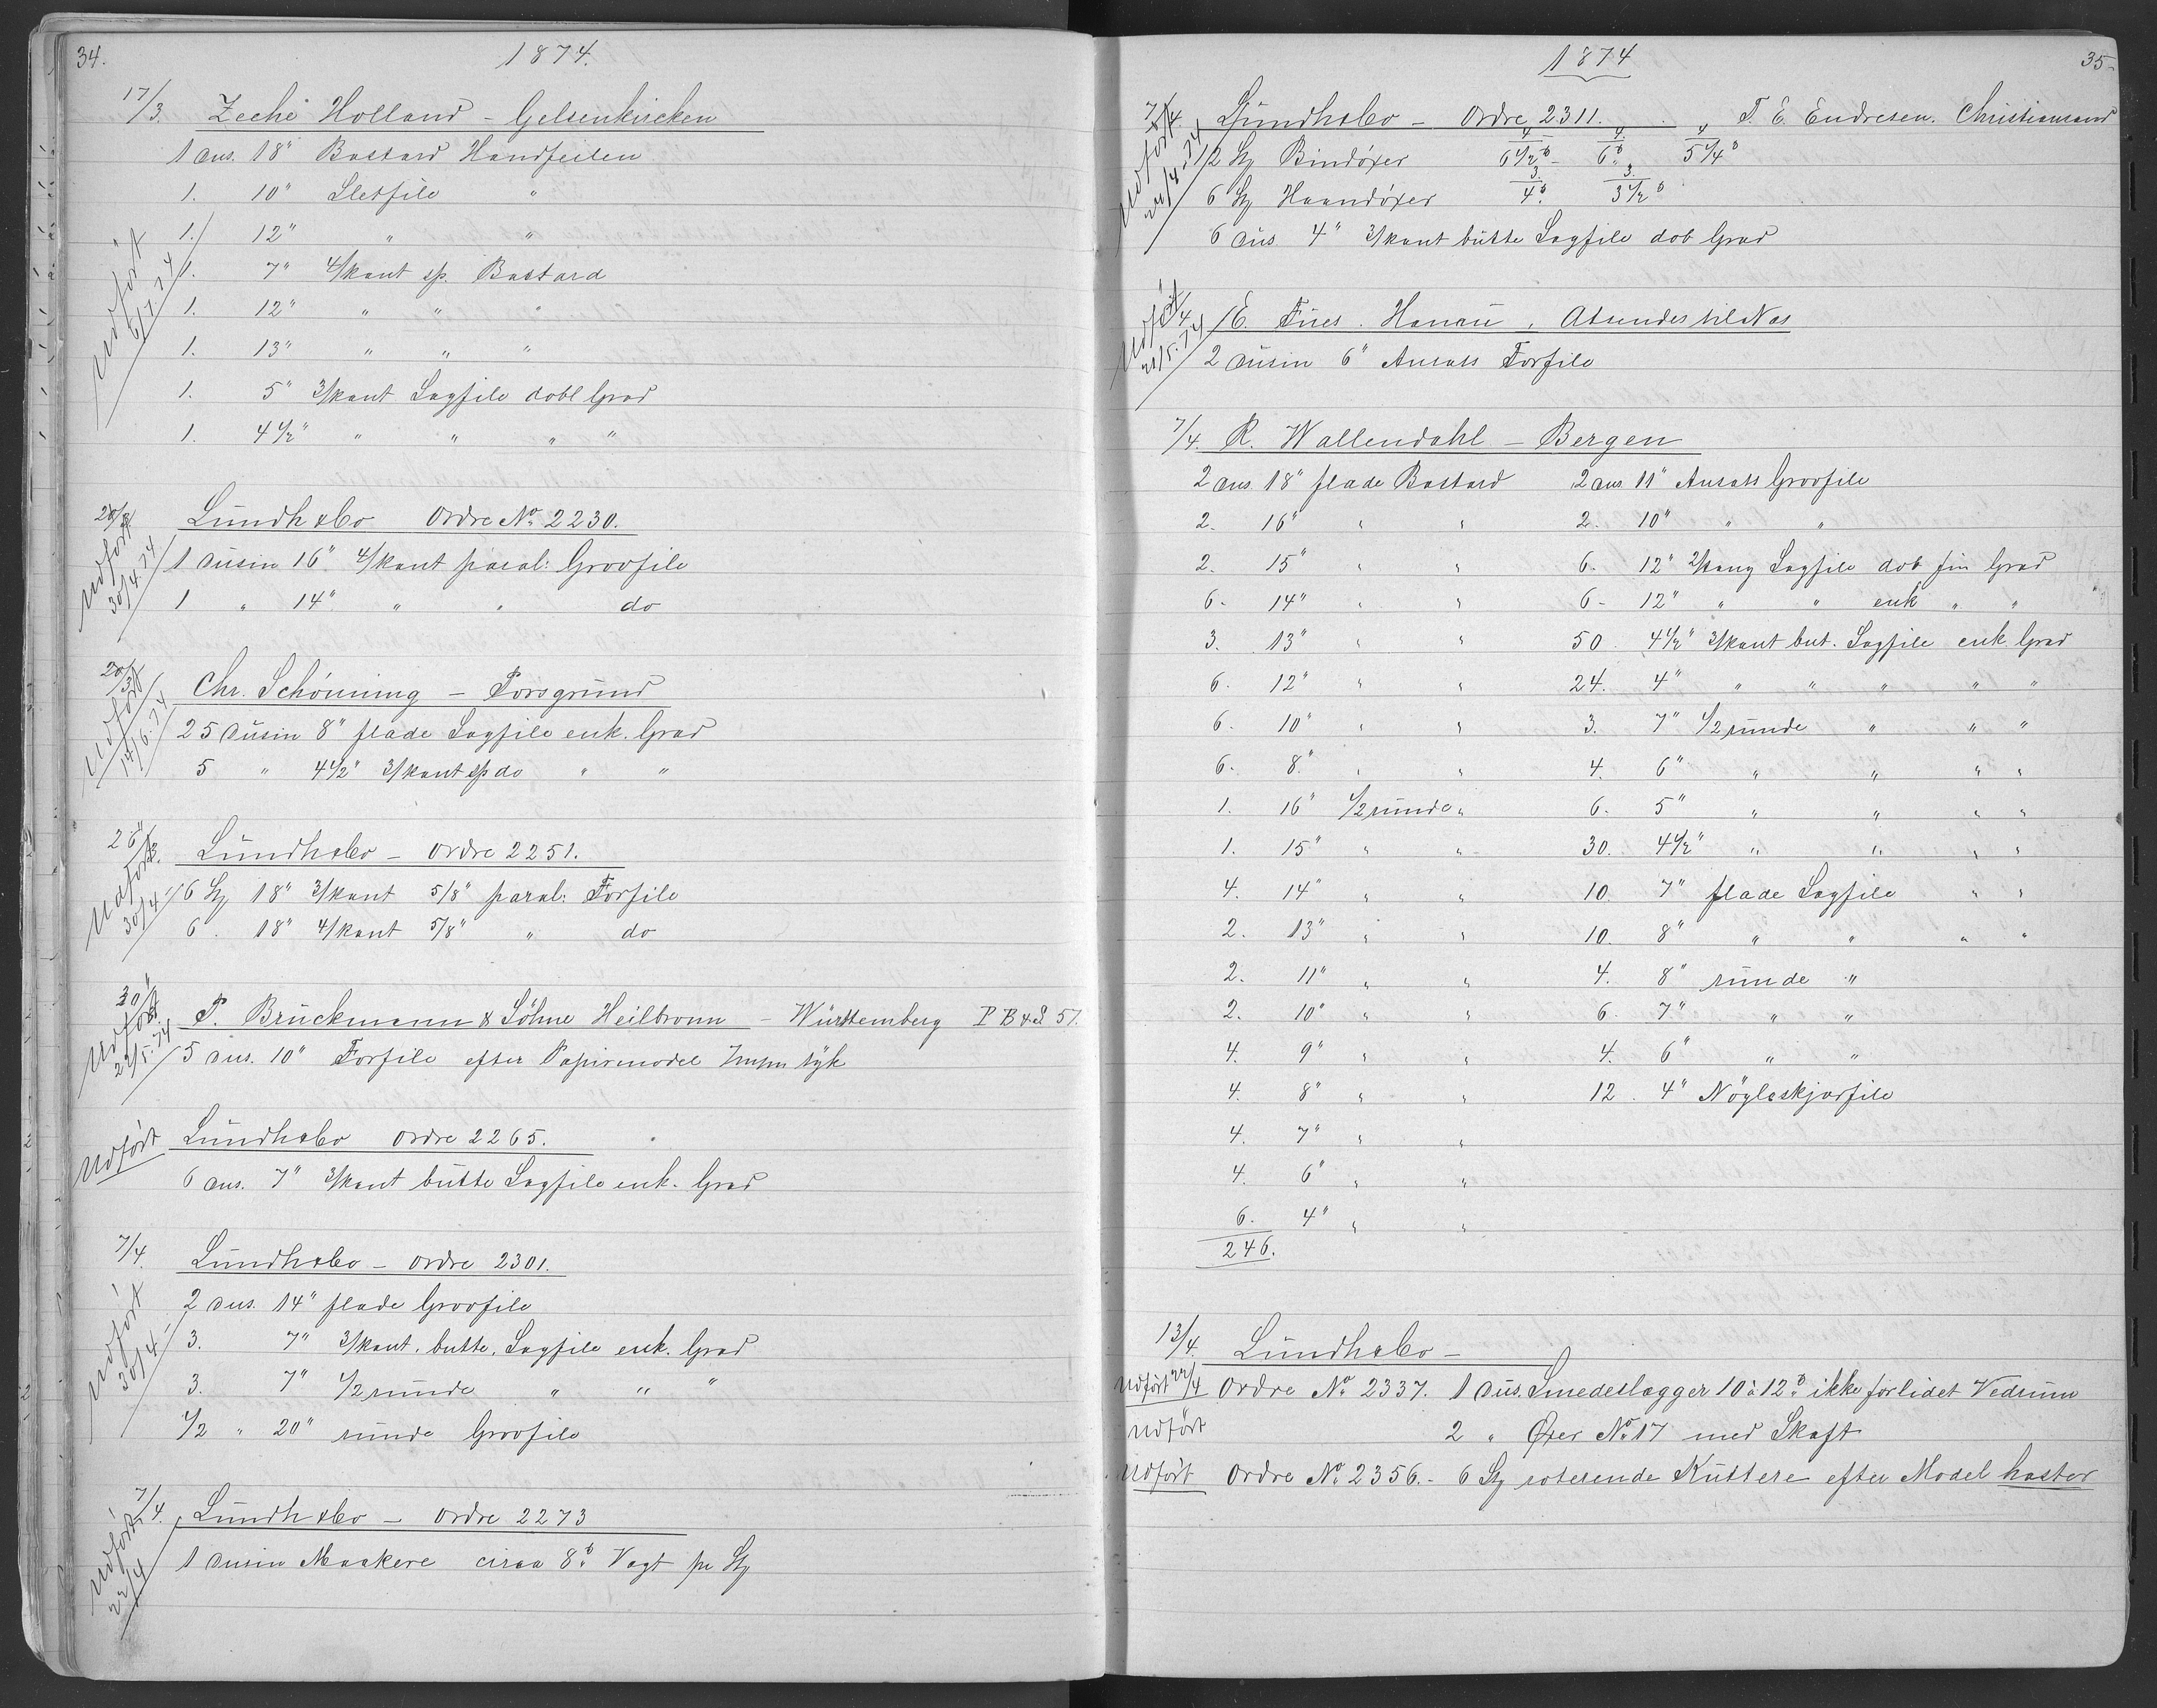 34.
1874.
17/3. Zeche Holland - Gelsenkircken
1 dus. 18" Bastard Handfeilen
1. 10" Sletfile "
1. 12" " "
1. 7" 4/kant sp. Bastard
1. 12" " " "
1. 13" " " "
1. 5" 3/kant Sagfile dobl Grad
1. 4 1/2" " " " "
Udført 6/7.74
20/3 Lundh & Co Ordre No. 2230.
1 dusin 16" 4/kant paral: Grovfile
1 " 14" " " do
Udført 30/4.74
20/3 Chr. Schönning - Porsgrund
25 dusin 8" flade Sagfile enk. Grad
5 " 4 1/2" 3/kant sp do " "
Udført 14/6.74
26/3. Lundh & Co - Ordre 2251.
6 St 18" 3/kant 5/8" paral: Forfile
6. 18" 4/kant 5/8" " do
Udført 30/4
30/ P. Bruckmann & Söhne Heilbronn - Württemberg P B & S 57.
5 dus. 10" Forfile efter Papirmodel tyk
Udført 22/5.74
Udført Lundh & Co Ordre 2265.
6 dus. 7" 3/kant butte Sagfile enk. Grad
7/4. Lundh & Co - Ordre 2301.
2 dus. 14" flade Grovfile
3. 7" 3/kant. butte. Sagfile enk. Grad
3. 7" 1/2 runde " " "
1/2 " 20" runde Grovfile
Udført 30/4
7/4. Lundh & Co - Ordre 2273
1 dusin Maakere circa 8 ℔ Vægt pr St
Udført 22/4
1874
35
7/4. Lundh & Co - Ordre 2311. T. E. Endresen. Christiansand
12 St Bindöxer 4/6 1/2 ℔ - 4/6 ℔ 4/5 1/4 ℔
6 St Haandöxer 3/4 ℔ 3/3 1/2 ℔
6 dus 4" 3/kant butte Sagfile dob Grad
Udført
/4 E. Fues. Hanau, Atsendes til Nas
2 dusin 6" Ansats Forfile
Udført 21/5.74
7/4. R. Wallendahl - Bergen
2 dus. 18" flade Bastard 2 dus 11" Ansats Grovfile
2. 16" " " 2. 10" " "
2. 15" " " 6. 12" Sagfile dob fin Grad
6. 14" " " 6. 12" " " enk " "
3. 13" " " 50. 4 1/2" 3/kant but. Sagfile enk. Grad
6. 12" " " 24. 4" " " " " "
6. 10" " " 3. 7" 1/2 runde " " "
6. 8" " " 4. 6" " " " "
1. 16" 1/2 runde " 6. 5" " " " "
1. 15" " " 30. 4 1/2" " " " "
4. 14" " " 10. 7" flade Sagfile " "
2. 13" " " 10. 8" " " " "
2. 11" " " 4. 8" runde "
2. 10" " " 6. 7" " "
4. 9" " " 4. 6" " "
4. 8" " " 12. 4" Nögleskjærfile
4. 7" " "
4. 6" " "
6. 4" " "
246.
13/4. Lundh & Co -
Udført 22/4 Ordre No. 2337. 1 dus. Smedeslægger 10 à 12 ℔ ikke forlidet Vedrum
Udført 2 " Øxer No. 17 med Skaft
Udført Ordre No. 2356. - 6 St roterende Kuttere efter Model haster